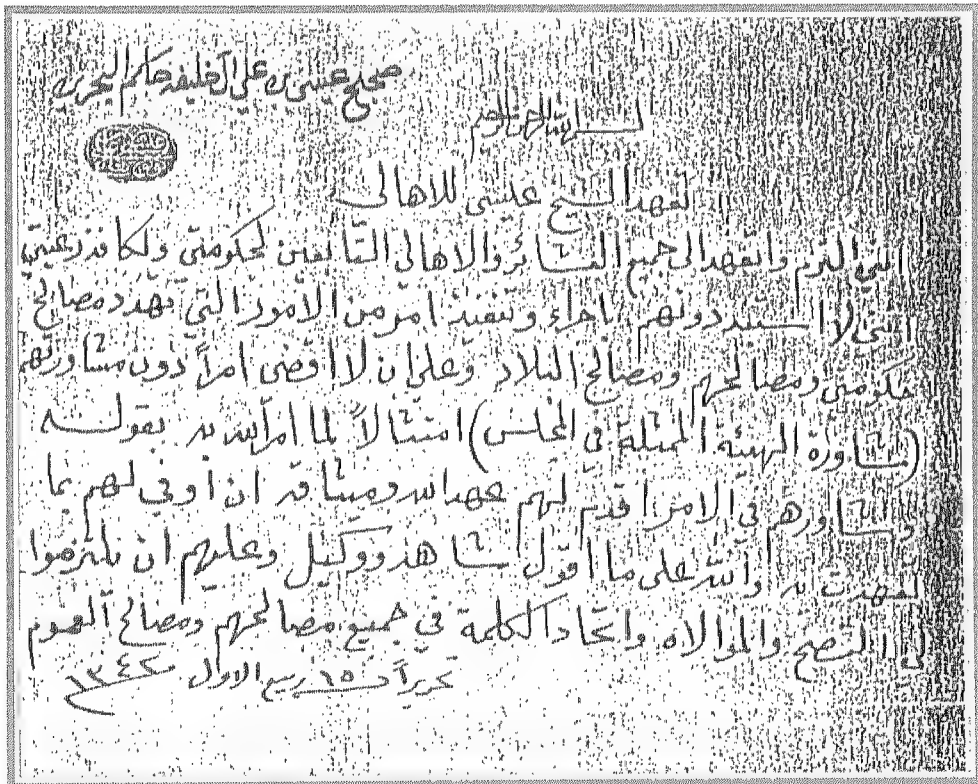 صحيح عيسى بن علي آل خليفة حاكم البحرين
بسم الله الرحمن الرحيم
تعهد الشيخ عيسى للاهالي
انني التزم واتعهد الى جميع العشائر والاهالي التابعين لحكومتي ولكافة رعيتي
انني لا استبد دونهم باجراء وتنفيذ امر من الامور التي تهدد مصالح
حكومتي ومصالحهم ومصالح البلاد وعلي ان لا اقضي امراً دون مشاورتهم
(مشاورة الهيئة الممثلة في المجلس) امتثالاً لما امر الله به بقوله
وشاورهم في الامر اقدم لهم عهد الله وميثاقه ان اوفي لهم بما
تعهدت به والله على ما اقول شاهد ووكيل وعليهم ان يلتزموا
لي النصح والموالاه واتحاد الكلمة في جميع مصالحهم ومصالح العموم
تحريراً في ١٥ ربيع الاول ١٣٤٢